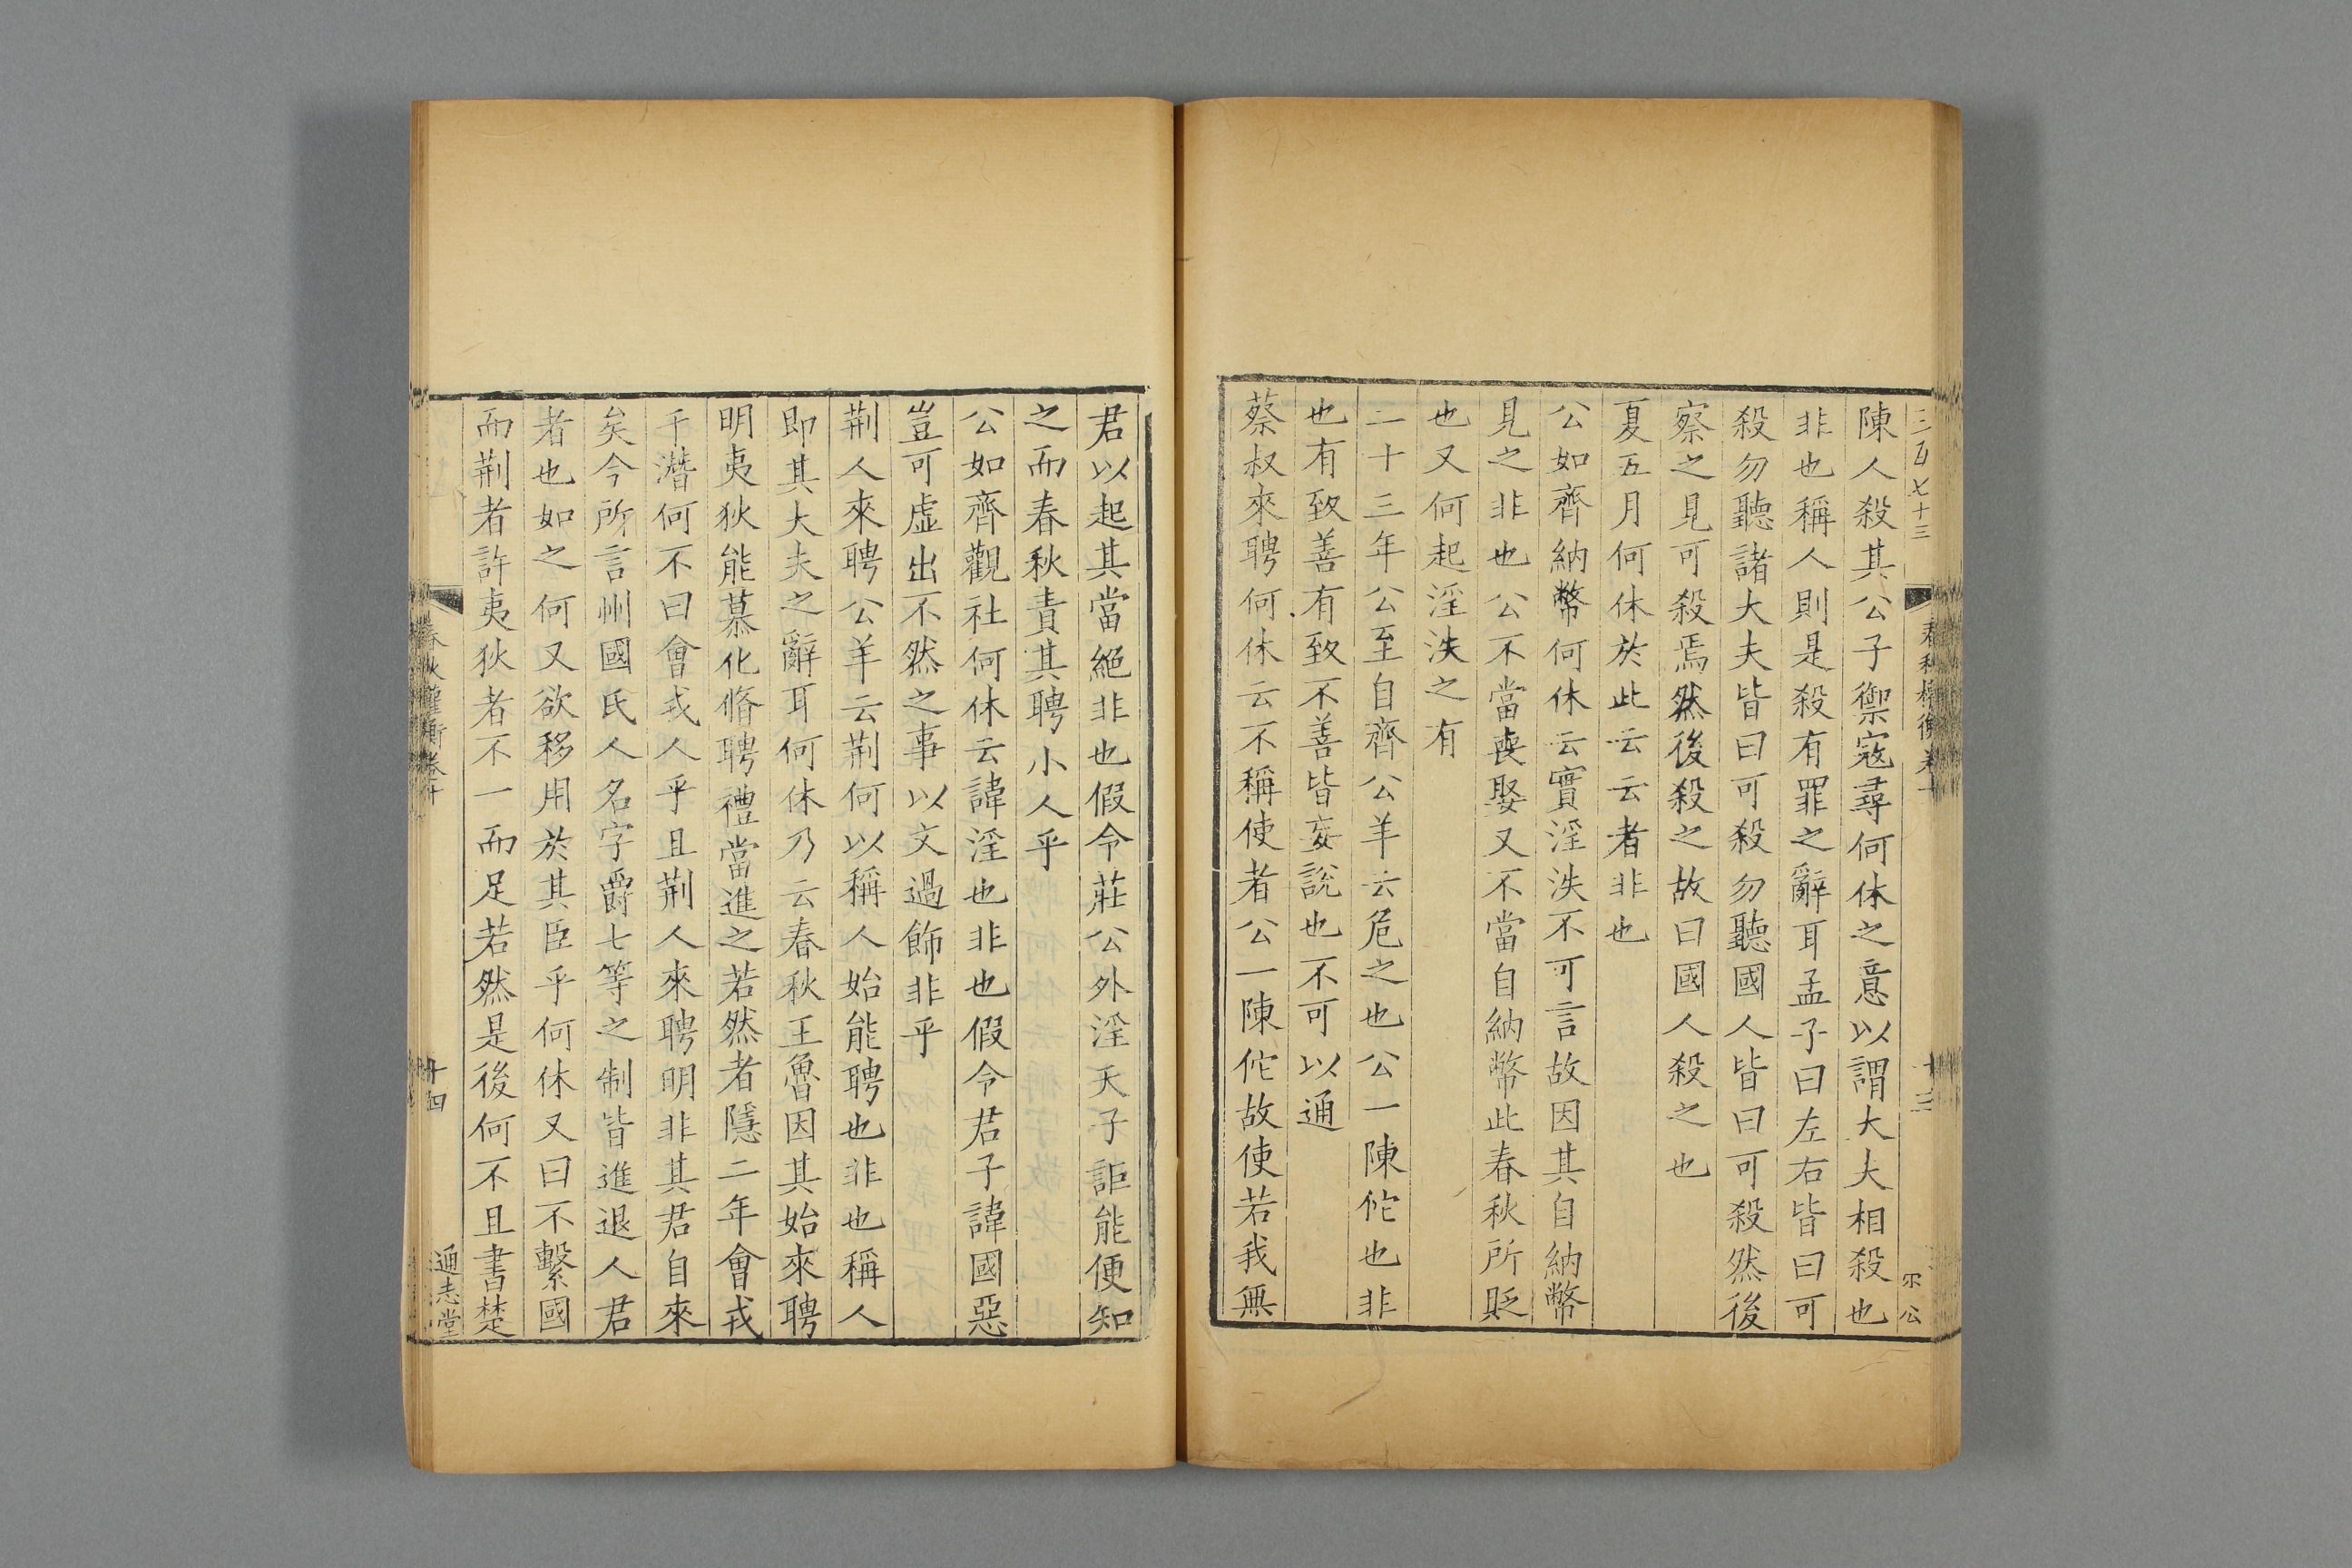 三百七十三
十三
陳人殺其公子禦寇尋何休之意以謂大夫相殺也
非也稱人則是殺有罪之辭耳孟子曰左右皆曰可
殺勿聽諸大夫皆曰可殺勿聽國人皆曰可殺然後
察之見可殺焉然後殺之故曰國人殺之也
夏五月何休於此云云者非也
公如齊納幣何休云實淫泆不可言故因其自納幣
見之非也公不當喪娶又不當自納幣此春秋所貶
也又何起淫泆之有
二十三年公至自齊公羊云危之也公一陳佗也非
也有致善有致不善皆妄說也不可以通
蔡叔來聘何休云不稱使者公一陳佗故使若我無
君以起其當絕非也假令莊公外淫天子詎能便知
之而春秋責其聘小人乎
公如齊觀社何休云諱淫也非也假令君子諱國惡
豈可虛出不然之事以文過飾非乎
荆人來聘公羊云荆何以稱人始能聘也非也稱人
即其大夫之辭耳何休乃云春秋王魯因其始來聘
明夷狄能慕化脩聘禮當進之若然者隱二年會戎
于潛何不曰會戎人乎且荆人來聘明非其君自來
矣今所言州國氏人名字爵七等之制皆進退人君
者也如之何又欲移用於其臣乎何休又曰不繫國
而荆者許夷狄者不一而足若然是後何不且書楚
春秋權衡卷十
十四
通志堂